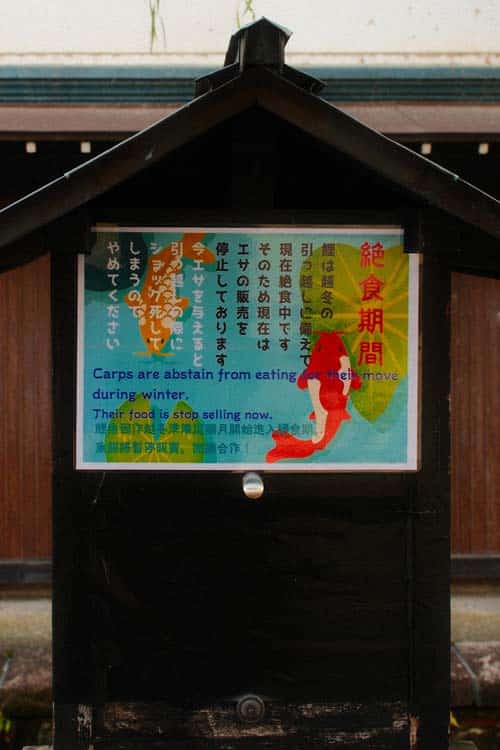 絶食期間
鯉は越冬の
引っ越しに備えて
現在絶食中です
そのため現在は
エサの販売を
停止しております
今エサを与えると
引っ越しの際に
ショック死して
しまうので
やめてください
Carps are abstain from eating for their move
during winter.
Their food is stop selling now.